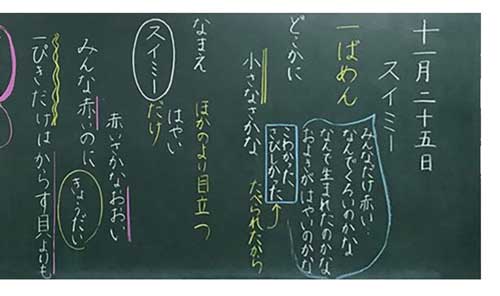 十一月二十五日
スイミー
みんなだけ赤い…
なんでくろいのかな
なんで生まれたのかな
およぎがはやいのかな
一ばめん
こわかった、
さびしかった
たべられたから
どこかに
小さなさかな
ほかのより目立つ
なまえ
スイミー
だけ
はやい
赤いさかなおおい
みんな赤いのに
きょうだい
一ぴきだけはからす貝よりも